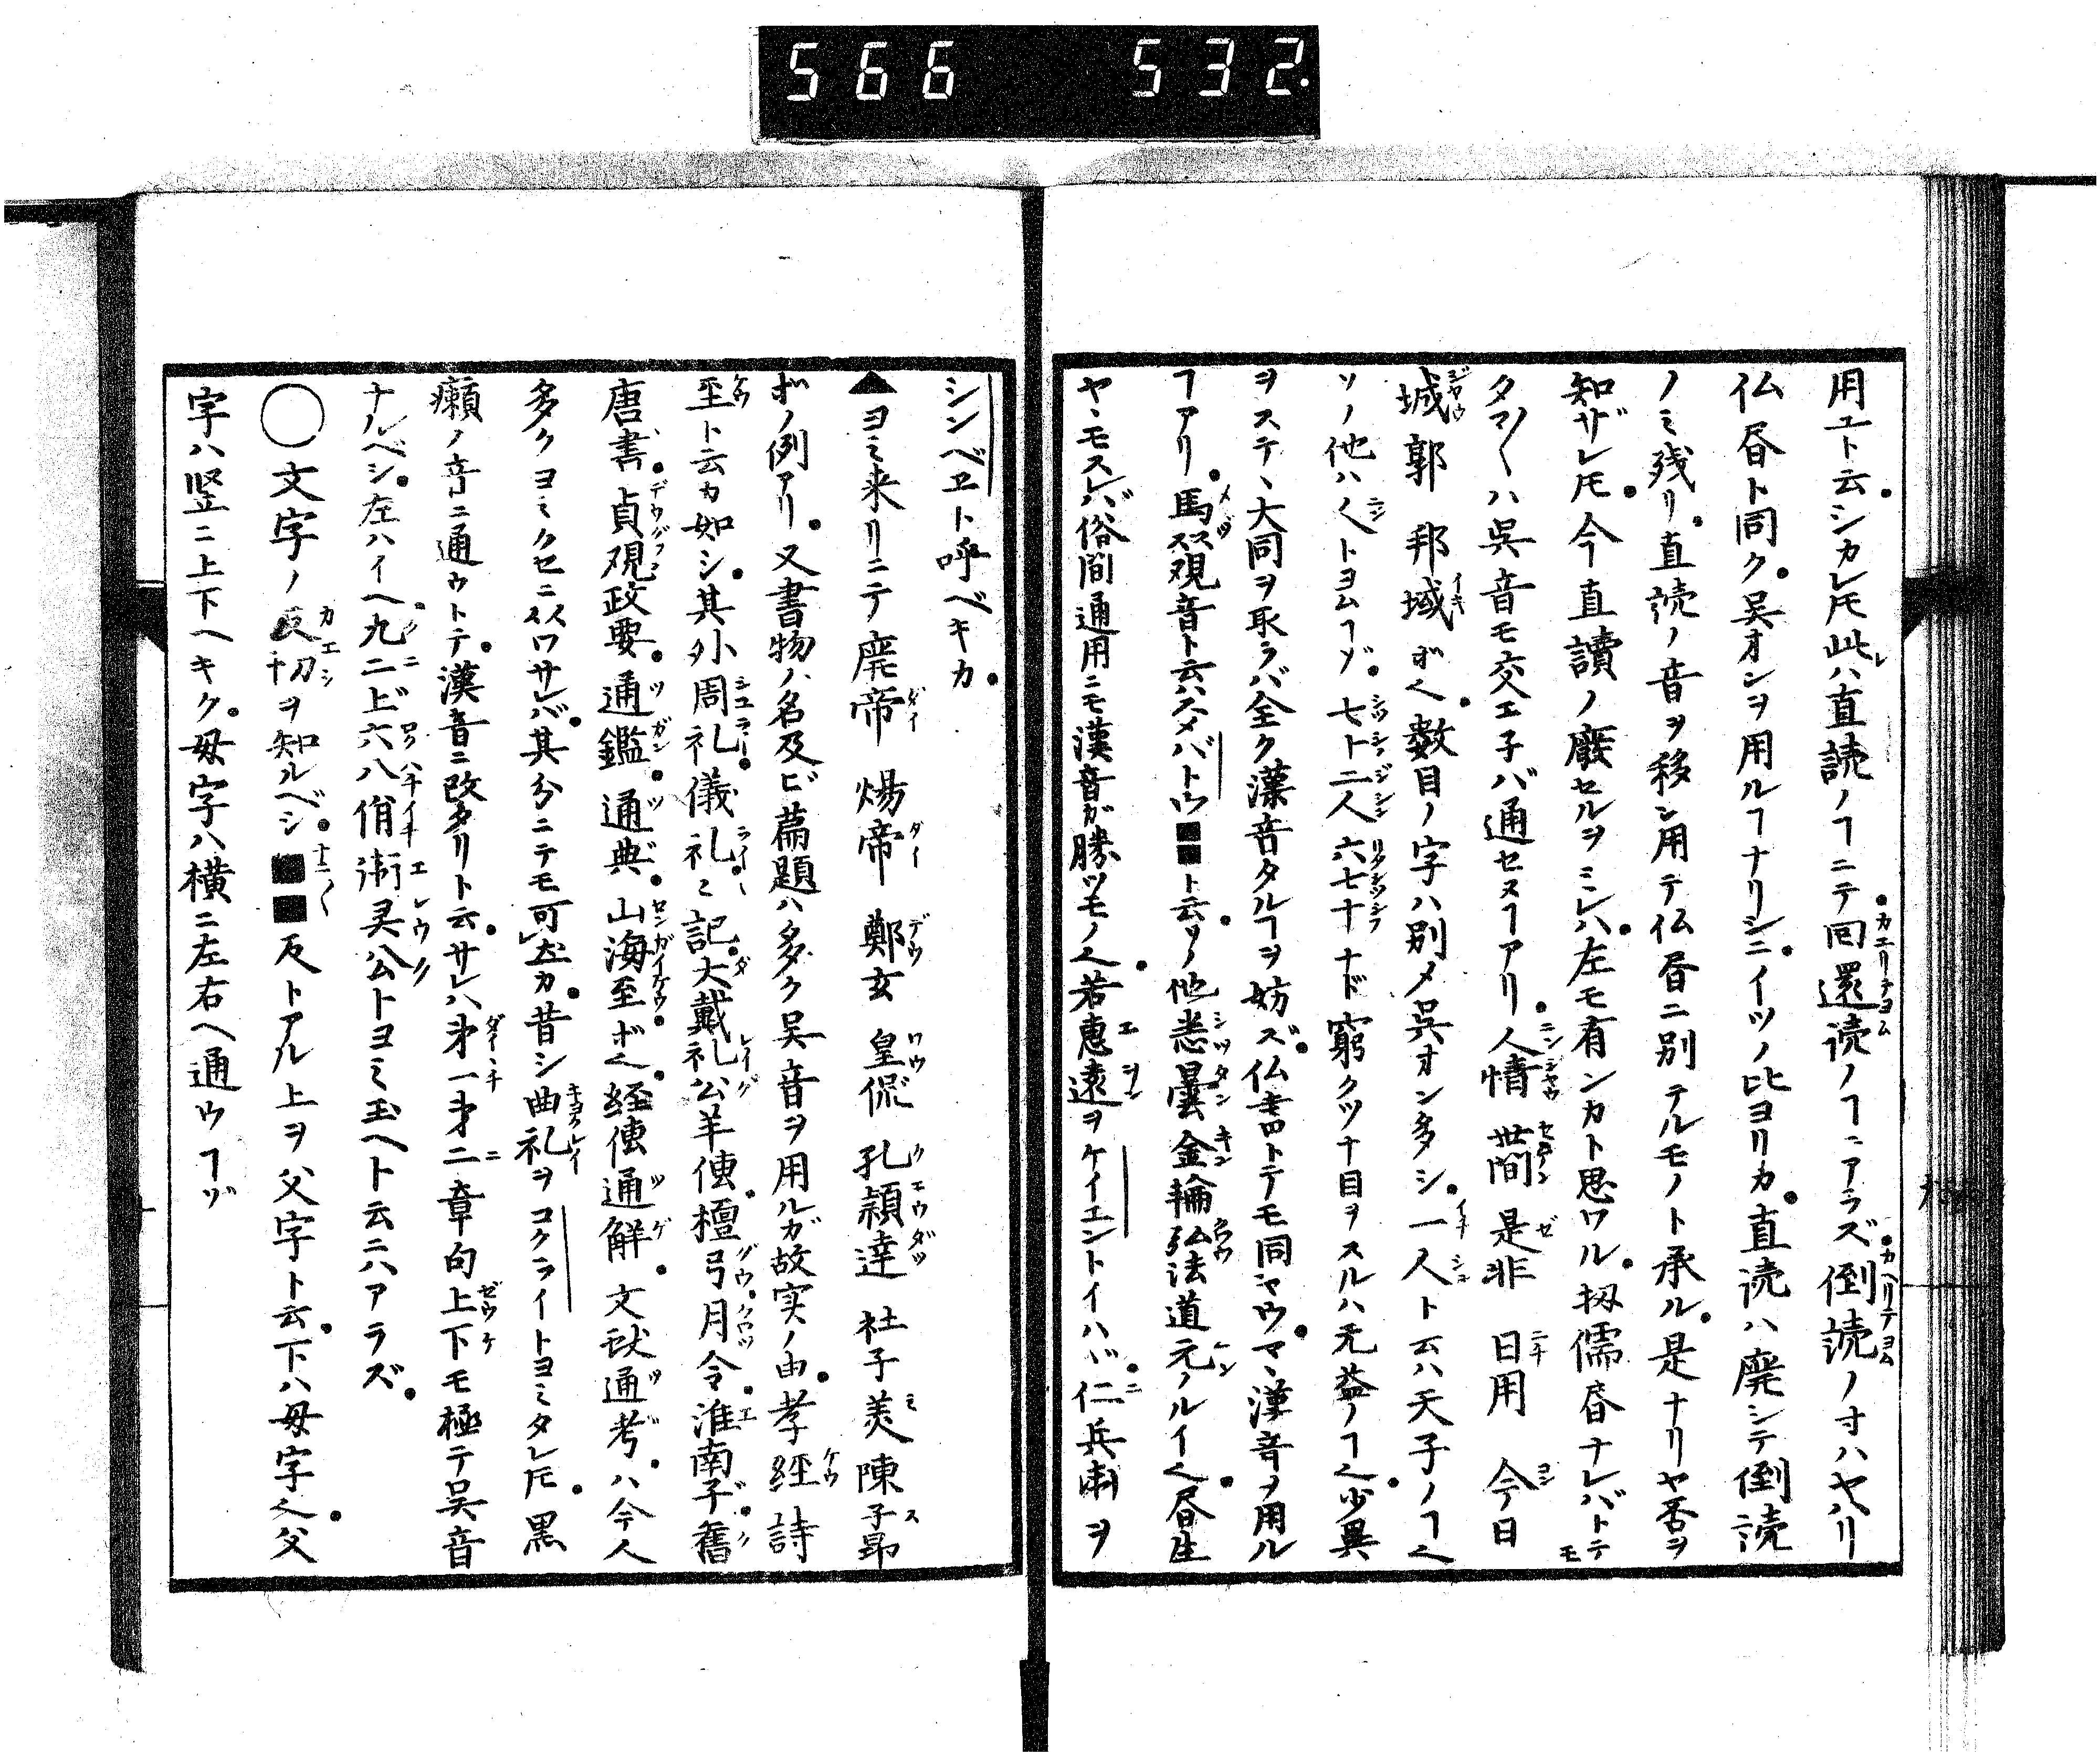 566 532.
用ユト云。シカレ𪜈此ハ直読ノヿニテ回還読ノヿニアラズ倒読ノ寸ハヤハリ
仏書ト同ク。呉オンヲ用ルヿナリシニ。イツノ比ヨリカ。直読ハ廃シテ倒読
ノミ残リ。直読ノ音ヲ移シ用テ仏書ニ別テルモノト承ル。是ナリヤ否ヲ
知ザレ𪜈。今直讀ノ廢セルヲミレハ。左モ有ンカト思ワル。扨儒書ナレバトテモ
タマ〱ハ呉音モ交エ子バ通セヌヿアリ。人情 世間 是非 日用 今日
城郭 邦域ボ〱。数目ノ字ハ別〆呉オン多シ。一人ト云ハ天子ノヿ〱
ソノ他ハ〱トヨムヿゾ。七十二人 六七十ナド窮クツナ目ヲスルハ无益ノヿ〱。少異
ヲステヽ大同ヲ取ラバ全ク漢音タルヿヲ妨ズ。仏書トテモ同シヤウ。マヽ漢音ヲ用ル
ヿアリ。馬 観音ト云ハスメバトウ■■ト云。ソノ他悉曇 金輪 弘法 道元ノルイ〱。書生
ヤヽモスレバ俗間通用ニモ漢音ガ勝ツモノ〱。若惠遠ヲケイエントイハバ。仁兵衛ヲ
シンベヱト呼ベキカ。
▲ヨミ来リニテ 廃帝 煬帝 鄭玄 皇侃 孔頴達 杜子美 陳子昂
ボノ例アリ。又書物ノ名及ビ篇題ハ多ク呉音ヲ用ルガ故実ノ由。孝經 詩
至ト云カ如シ。其外周礼。儀礼。〻記。大戴礼 公羊傳。檀弓。月令。淮南子。舊
唐書。貞観政要。通鑑。通典。山海至ボ〱。経傳通解。文献通考。ハ今人
多クヨミクセニ従ワサレバ。其分ニテモ可然カ。昔シ曲礼ヲコクライトヨミタレ𪜈。黒
癩ノ音ニ通ウトテ。漢音ニ改タリト云。サレハ才一才二章句上下モ極テ呉音
ナルベシ。左ハイヘ九二上六八佾衛灵公トヨミ玉ヘト云ニハアラズ。
○文字ノ反切ヲ知ルベシ。■■反トアル上ヲ父字ト云。下ハ母字〱。父
字ハ竪ニ上下ヘキク。母字ハ横ニ左右ヘ通ウヿゾ